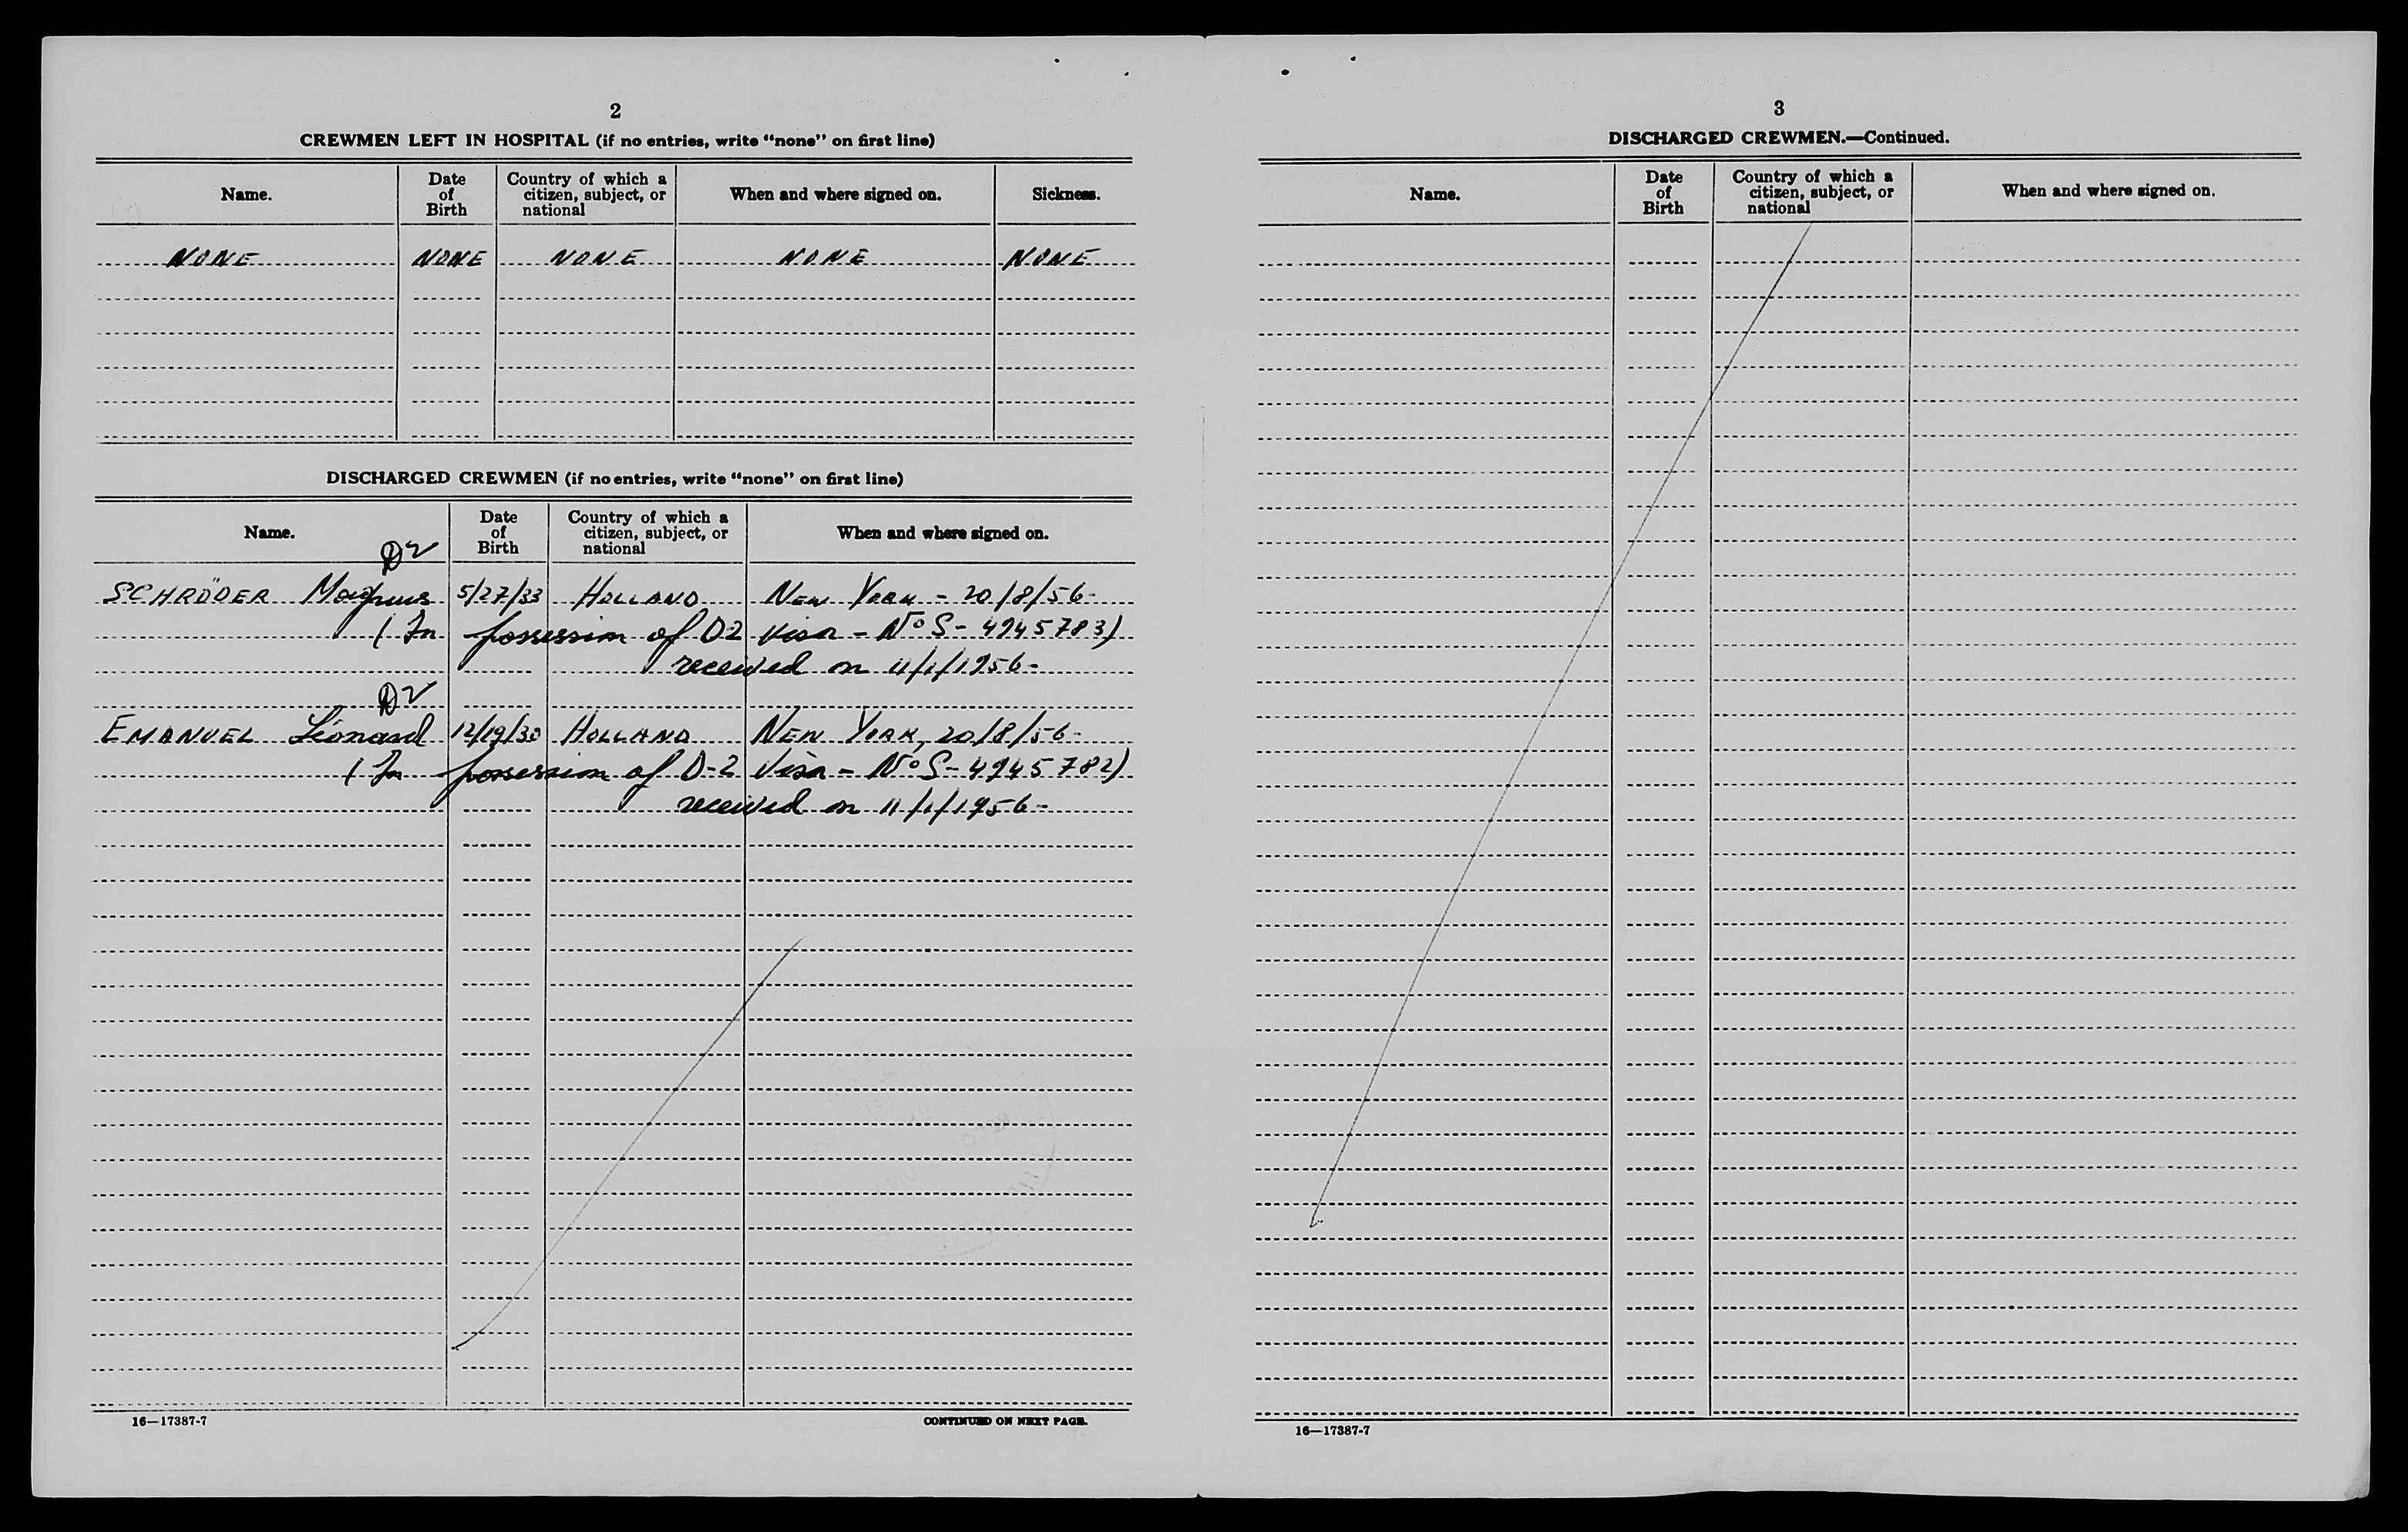 2
CREWMEN LEFT IN HOSPITAL (if no entries, write “none” on first line)
Name. Date of Birth Country of which a citizen, subject, or national When and where signed on. Sickness.
NONE NONE NONE NONE NONE
DISCHARGED CREWMEN (if no entries, write “none” on first line)
Name. Date of Birth Country of which a citizen, subject, or national When and where signed on.
D2
SCHRÖDER Magnus 5/27/33 HOLLAND NEW YORK - 20/8/56-
(In possession of D-2 visa - N° S- 4945783)
received on 11/1/1956-
D2
EMANUEL Léonard 12/19/30 HOLLAND NEW YORK, 20/8/56-
(In possession of D-2 Visa - N° S- 4945782)
received on 11/1/1956-
16—17387-7 CONTINUED ON NEXT PAGE.
3
DISCHARGED CREWMEN.—Continued.
Name. Date of Birth Country of which a citizen, subject, or national When and where signed on.
16—17387-7